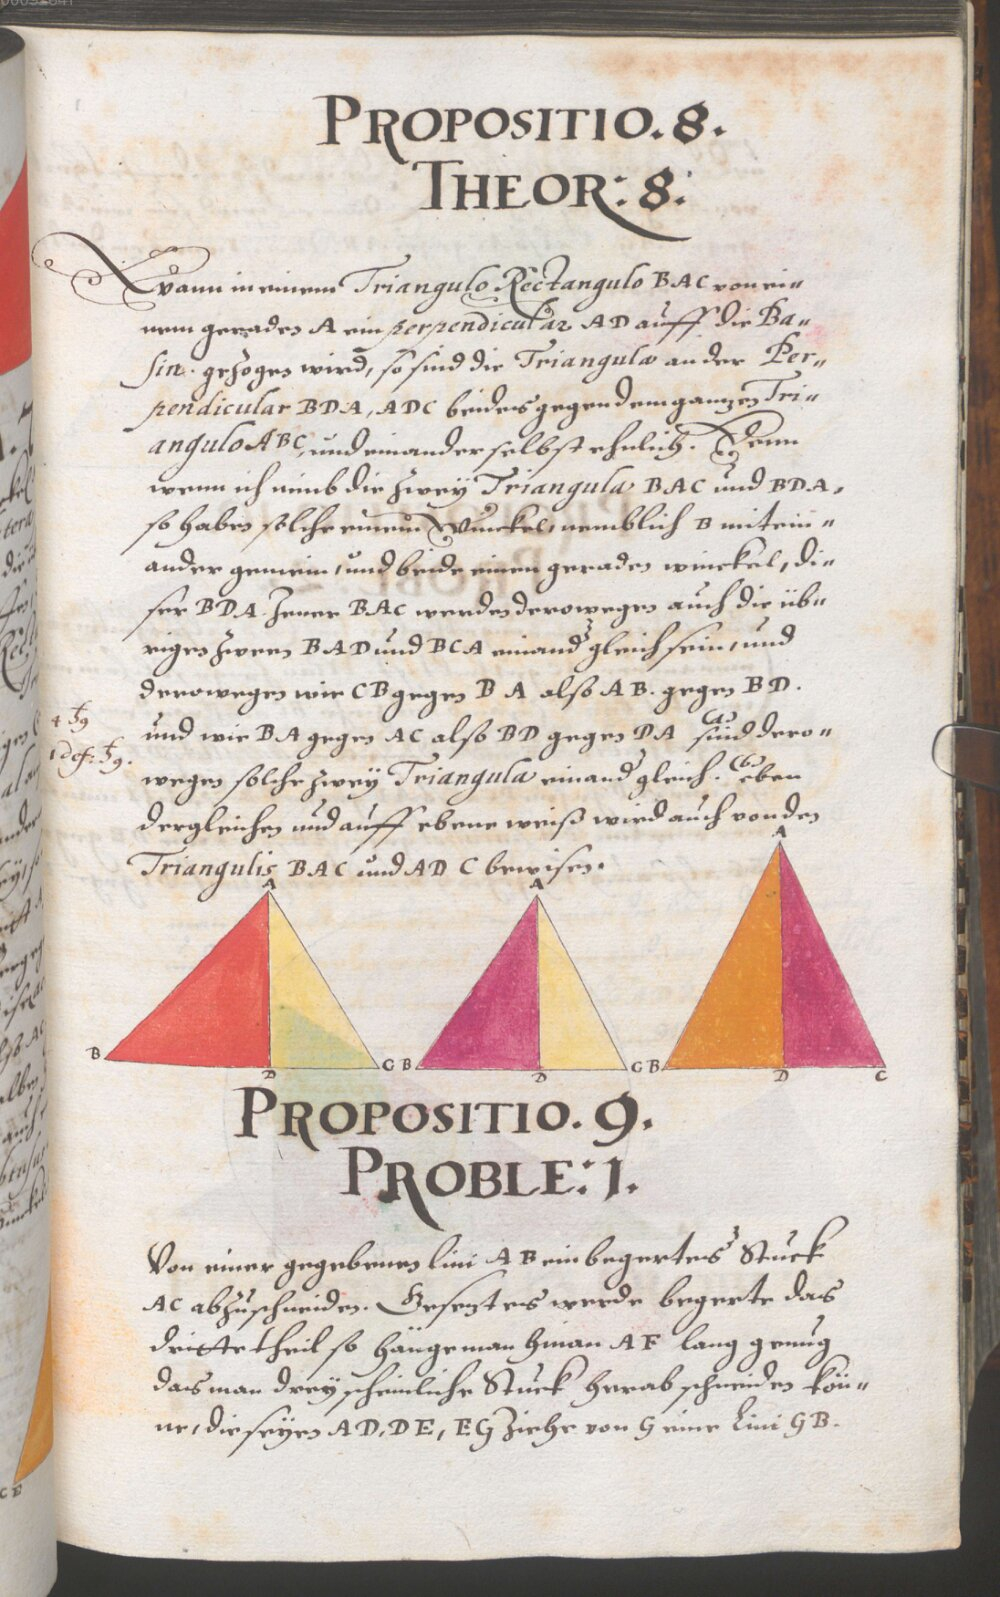 PROPOSITIO. 8.
THEOR: 8:
Wann in einem Triangulo Rectangulo BAC von ei=
nem geraden A ein perpendicular AD auff die Ba=
sin. gezogen wird, so sind die Triangula an der Per=
pendicular BDA, ADC beides gegen dem gantzen Tri=
angulo ABC, und einander selbst ehnlich. Denn
wenn ich nimb die zwey Triangula BAC und BDA,
so haben solche einen Winckel, nemblich B mitein=
ander gemein, und beide einen geraden winckel, di=
ser BDA. Jener BAC werden derowegen auch die üb=
rigen zween BAD und BCA einand gleich sein, und
derowegen wie CB gegen BA also AB. gegen BD.
und wie BA gegen AC also BD gegen DA (a) sind dero=
wegen solche zwey Triangula einand gleich. (b) eben
dergleichen und auff ebene weiß wird auch von den
Triangulis BAC und ADC bewisen.
A
A
A
B
D
C B
D
C B
D
C
PROPOSITIO. 9.
PROBLE: 1.
Von einer gegebenen lini AB ein begertes Stuck
AC abzuschneiden. Gesetzt es werde begerte das
dritte theil so hänge man hinan AF lang genug
das man drey scheinliche Stuck herab schneiden kön=
ne, die seyen AD, DE, EG Ziehe von G eine Lini GB.